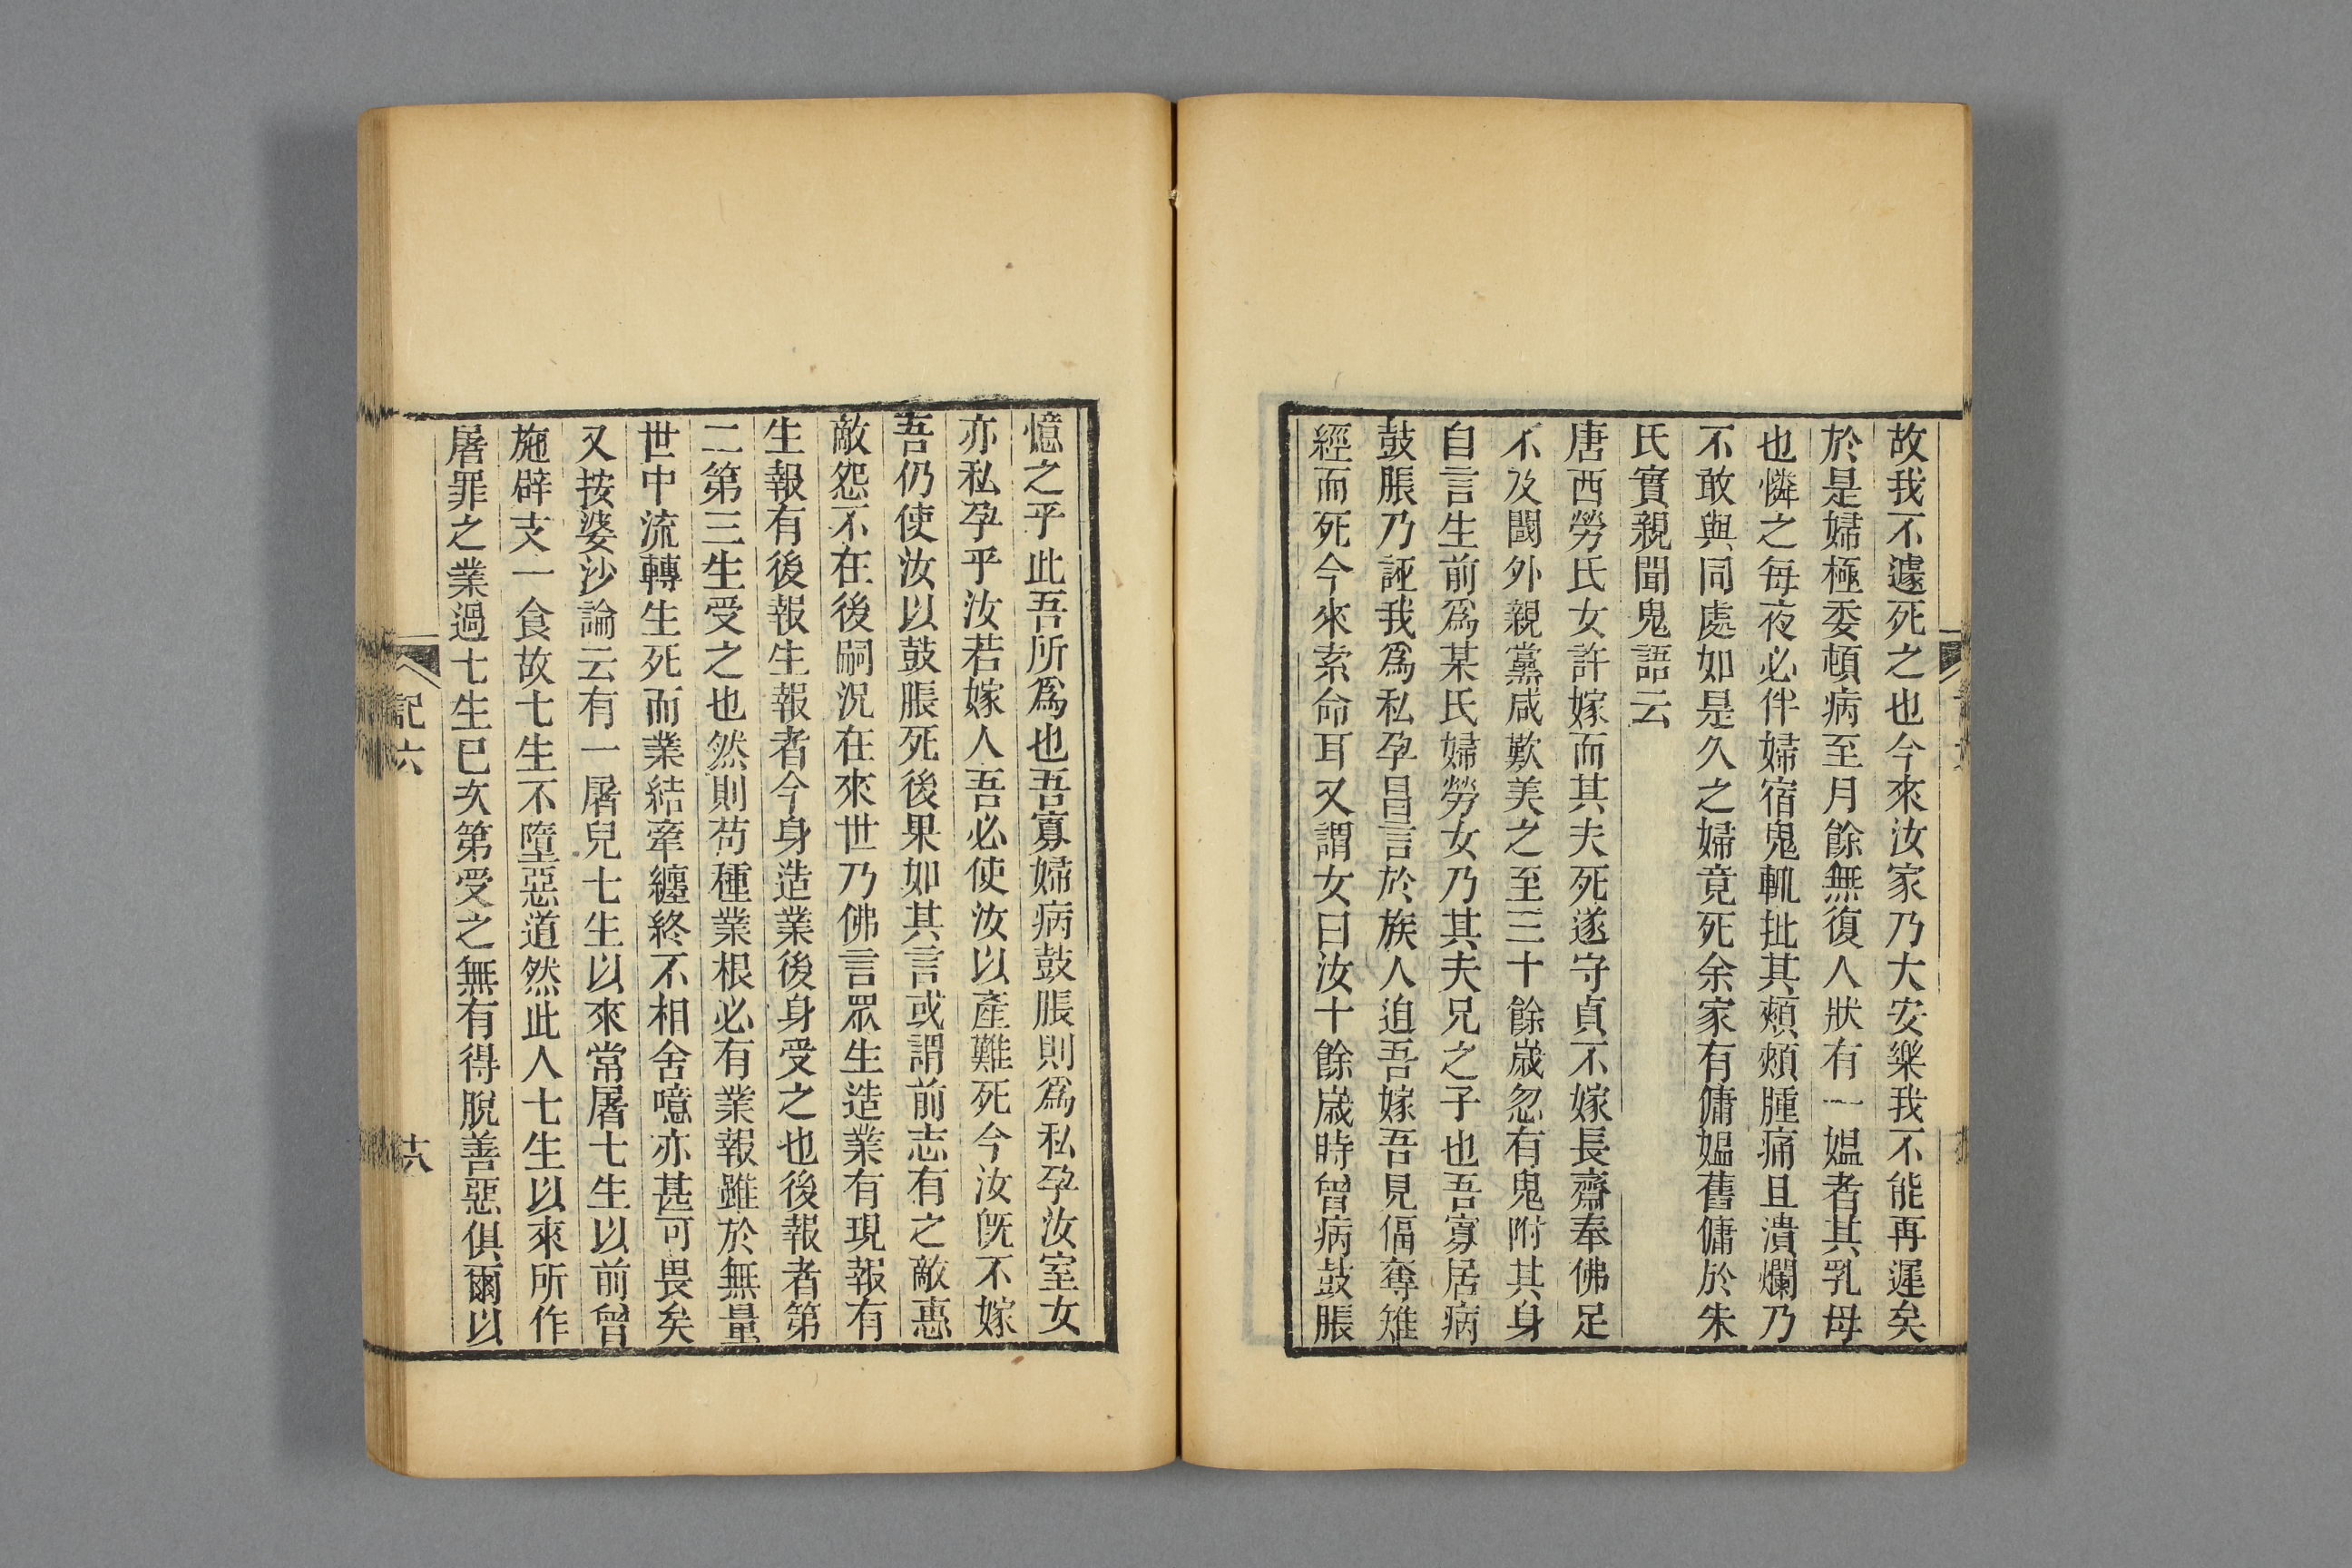 故我不遽死之也今來汝家乃大安樂我不能再遲矣
於是婦極委頓病至月餘無復人狀有一媼者其乳母
也憐之每夜必伴婦宿鬼輒批其頰頰腫痛且潰爛乃
不敢與同處如是久之婦竟死余家有傭媼舊傭於朱
氏實親聞鬼語云
唐西勞氏女許嫁而其夫死遂守貞不嫁長齋奉佛足
不及閾外親黨咸歎美之至三十餘歲忽有鬼附其身
自言生前爲某氏婦勞女乃其夫兄之子也吾寡居病
鼓脹乃誣我爲私孕昌言於族人迫吾嫁吾見偪奪雉
經而死今來索命耳又謂女曰汝十餘歲時曾病鼓脹
憶之乎此吾所爲也吾寡婦病鼓脹則爲私孕汝室女
亦私孕乎汝若嫁人吾必使汝以產難死今汝旣不嫁
吾仍使汝以鼓脹死後果如其言或謂前志有之敵惠
敵怨不在後嗣況在來世乃佛言眾生造業有現報有
生報有後報生報者今身造業後身受之也後報者第
二第三生受之也然則苟種業根必有業報雖於無量
世中流轉生死而業結牽纏終不相舍噫亦甚可畏矣
又按婆沙論云有一屠兒七生以來常屠七生以前曾
施辟支一食故七生不墮惡道然此人七生以來所作
屠罪之業過七生已次第受之無有得脫善惡俱爾以
記六
十六